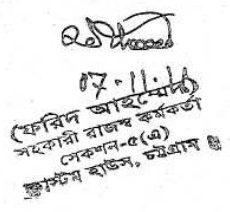 07.11.14
(ফরিদ আহমেদ)
সহকারী রাজস্ব কর্মকর্তা
সেকশন-৫(এ)
কাস্টম হাউস, চট্টগ্রাম